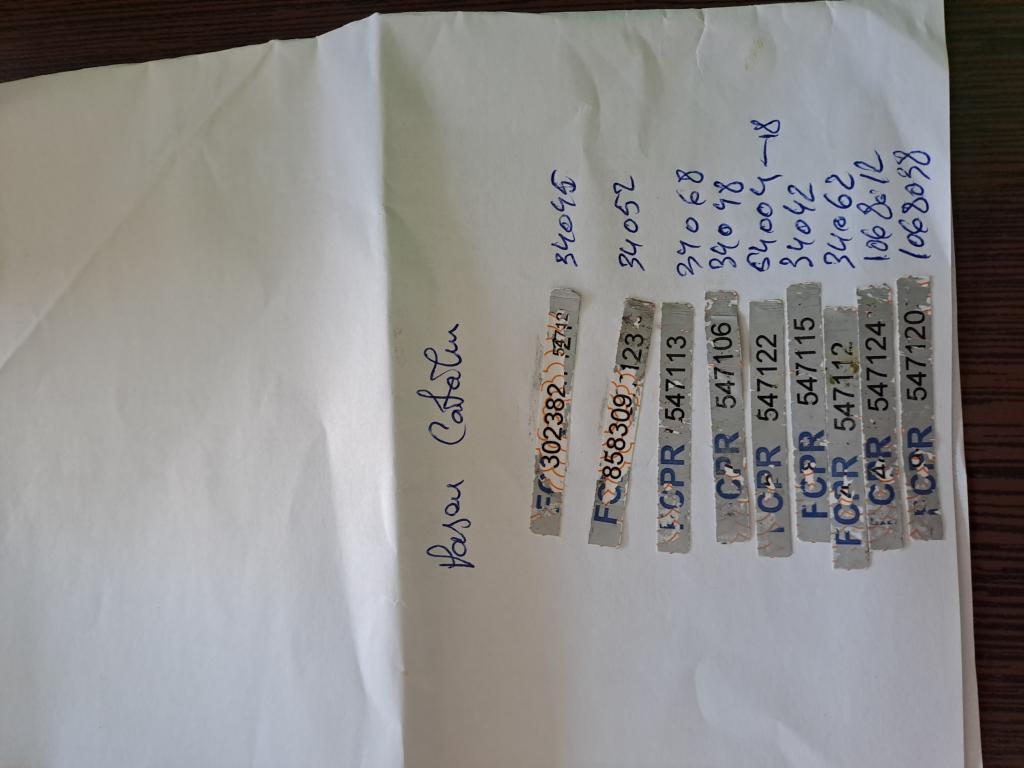 Hasan Catalin
FC 302382 34045
FC 858309 123 34052
FCPR 547113 34068
FCPR 547106 34048
FCPR 547122 64004-18
FCPR 547115 34042
FCPR 547112 34062
FCPR 547124 1068012
FCPR 547120 1068098